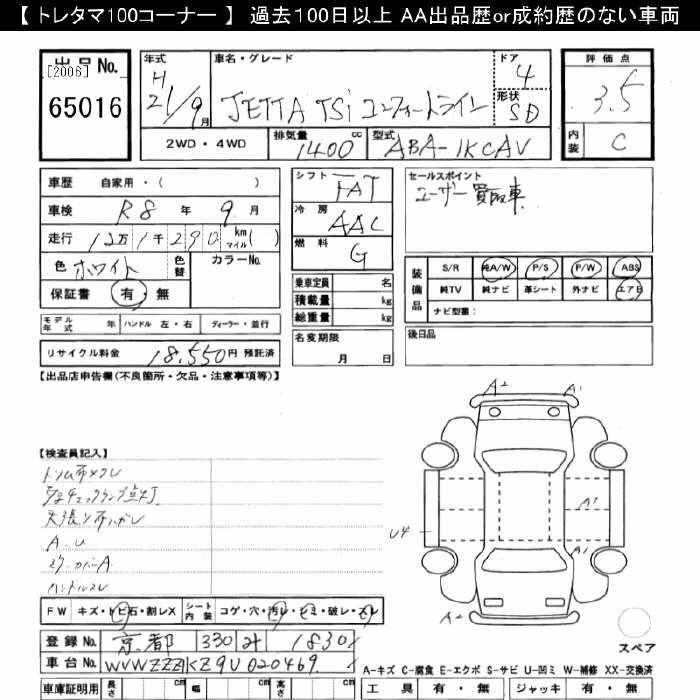 【 トレタマ100コーナー 】 過去100日以上 AA出品歴or成約歴のない車両
出品 No.
[2006]
65016
年式
H
21/9月
車名・グレード
JETTA TSi コンフォートライン
ドア
4
形状
SD
評価点
3.5
内装
C
2WD・4WD
排気量
1400 cc
型式
ABA-1KCAV
車歴 自家用・( )
車検 R8 年 9 月
走行 12万1千290 km マイル( )
色 ホワイト 色替
カラーNo.
保証書 有・無
シフト
FAT
冷房
AAC
燃料
G
乗車定員 名
積載量 kg
総重量 kg
セールスポイント
ユーザー買取車
装備品
S/R 純A/W P/S P/W ABS
純TV 純ナビ 革シート 外ナビ エアB
ナビ型番:
モデル年式 年 ハンドル 左・右 ディーラー・並行
名変期限
月 日
後日品
リサイクル料金 18,550円 預託済
【出品店申告欄(不良箇所・欠品・注意事項等)】
A2 A1
A1
U4
A1
A2
【検査員記入】
A.U
ハンドルスレ
FW キズ・トビ石・割レX シート内装 コゲ・穴・汚レ・シミ・破レ・スレ
登録 No. 京都 330 1830
車台 No. WVWZZZ1KZ9U020469
スペア
A-キズ C-腐食 E-エクボ S-サビ U-凹ミ W-補修 XX-交換済
車庫証明用 長さ cm 幅 cm 高さ cm
工具 有・無 ジャッキ 有・無